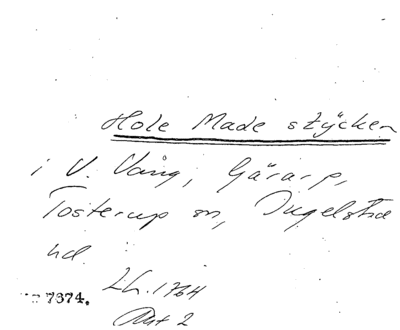 Hole Made stÿcken
i V. Vång, Gärarp,
Tosterup sn, Ingelstad
hd.
Lh. 1764
7674.
Akt 2